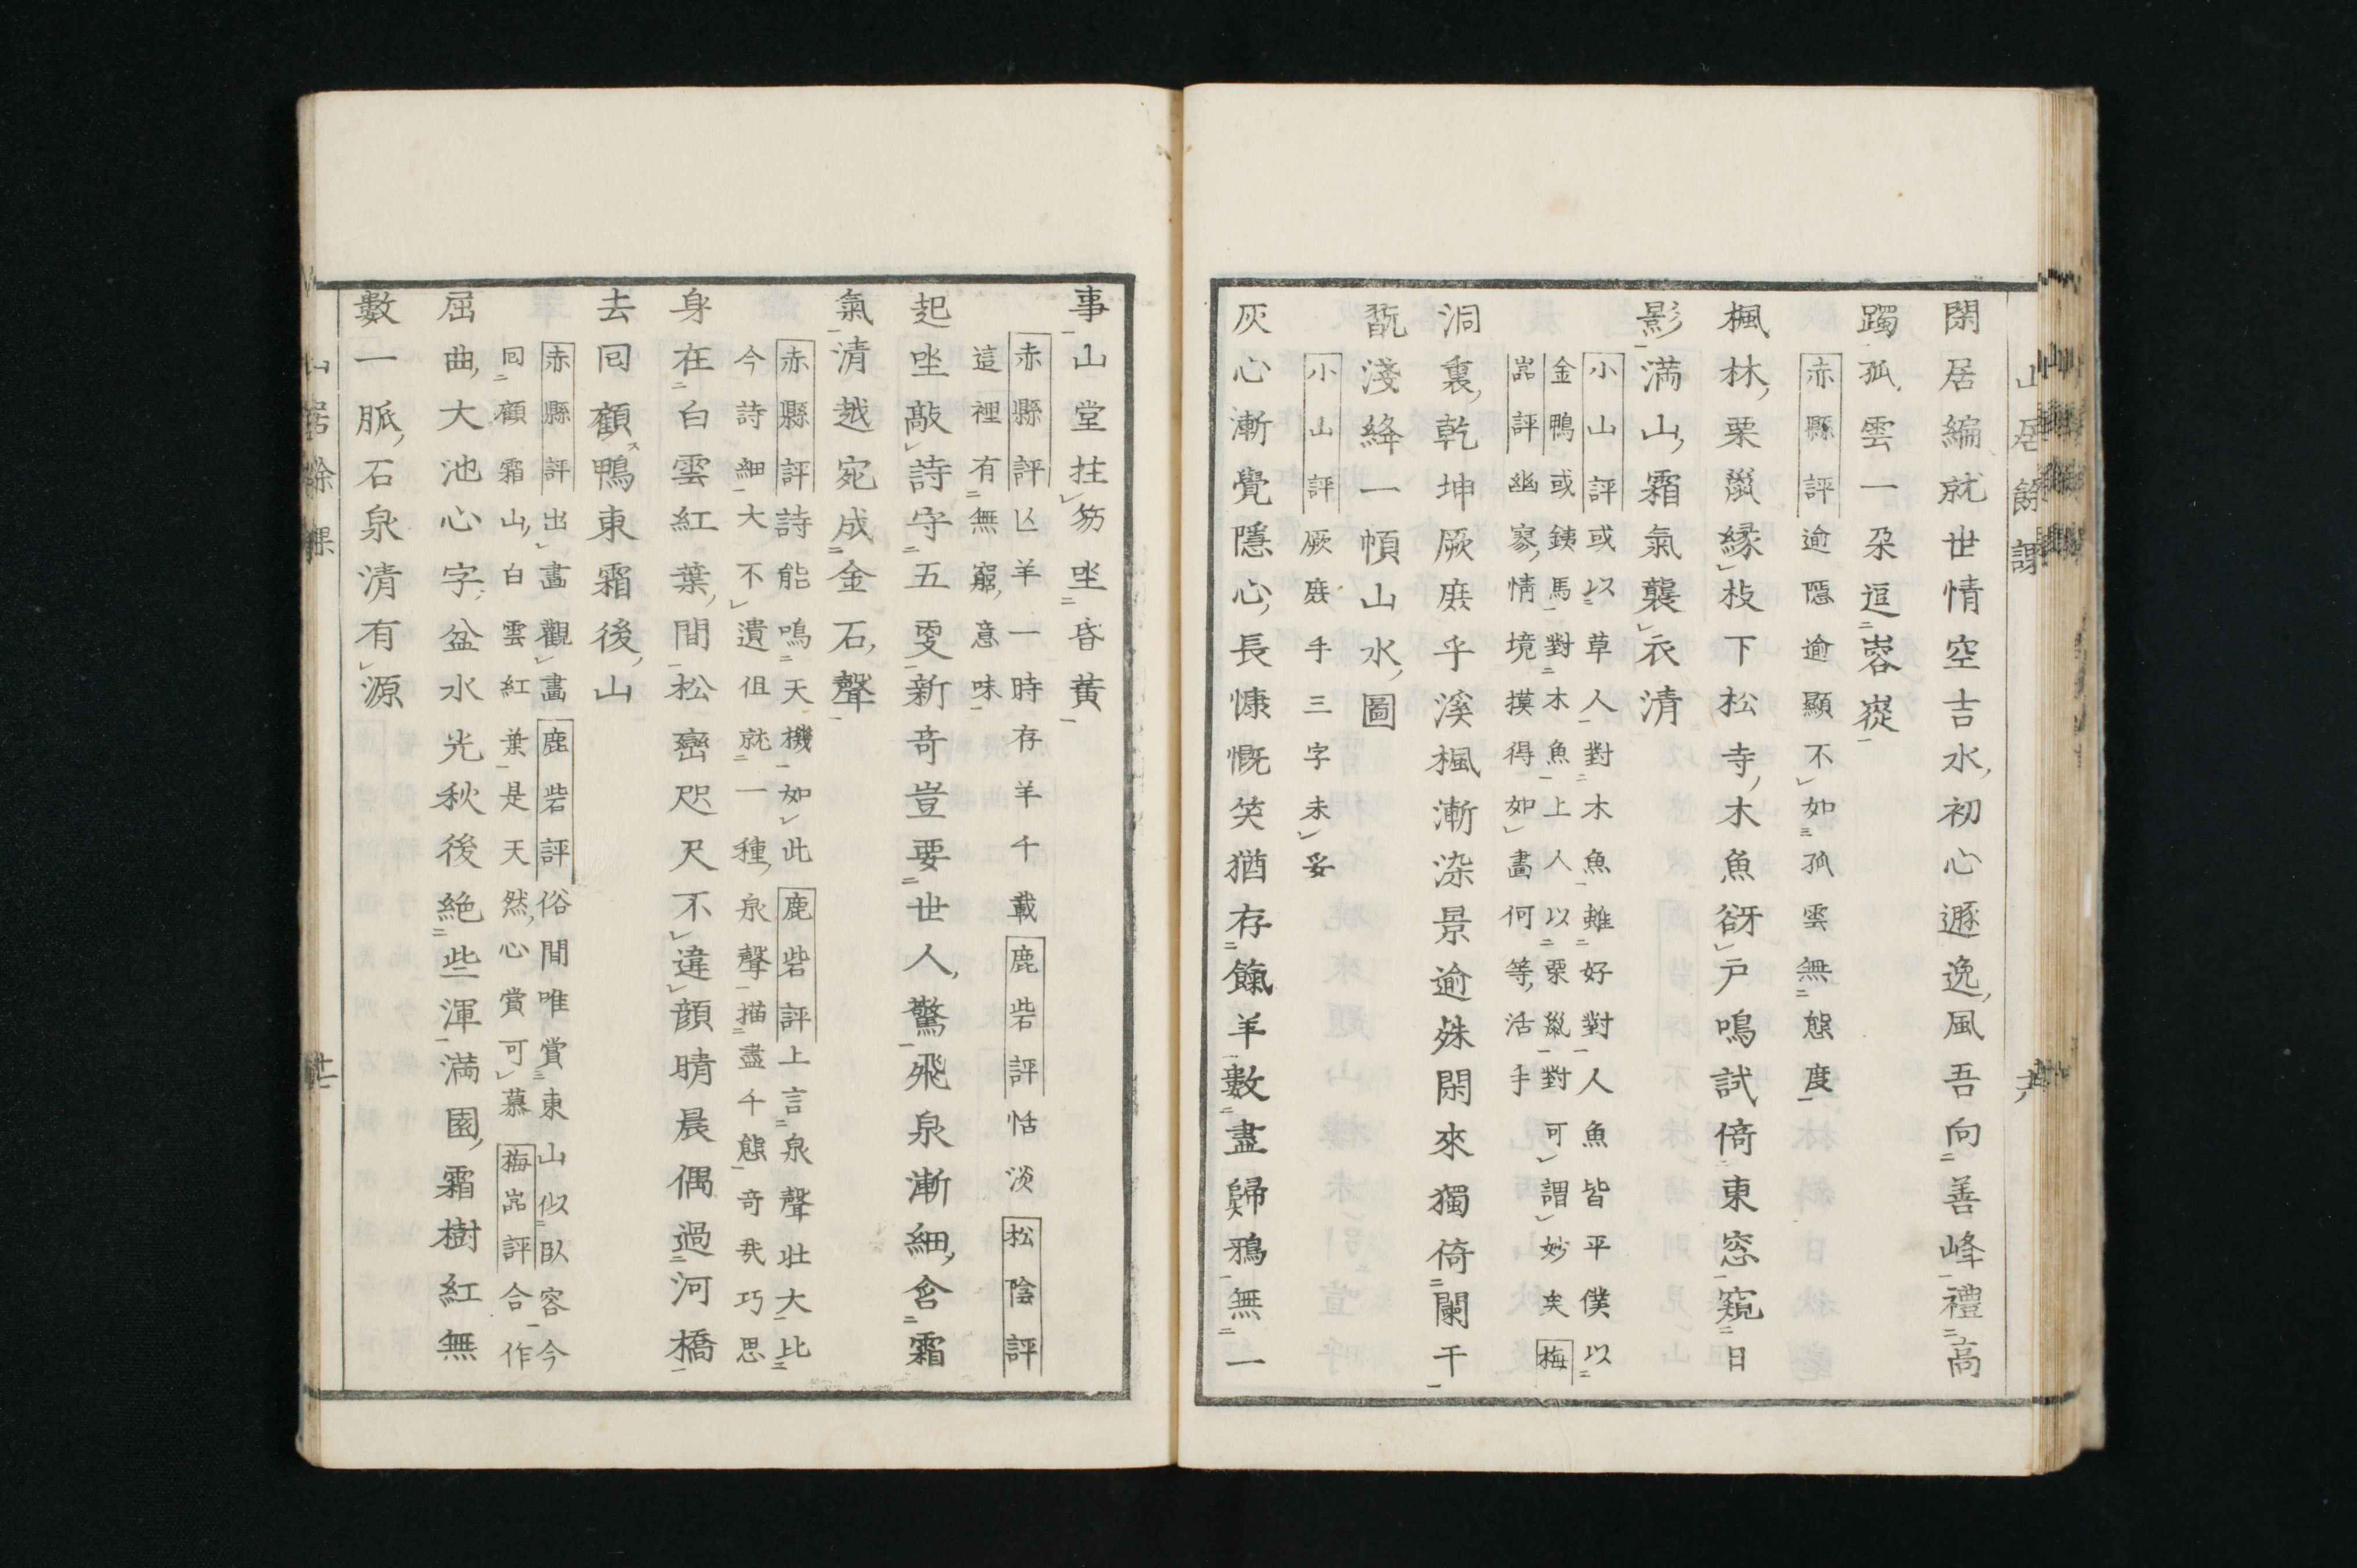 山居餘課
閑居編就世情空吉水初心遯逸風吾向善峰禮高
躅孤雲一朶逗巖嵸
赤縣評逾隱逾顯不如孤雲無態度
楓林栗鼠緣枝下松寺木魚谺戸鳴試倚東窓窺日
影滿山霜氣襲衣清
小山評或以草人對木魚雖好對人魚皆平僕以
金鴨或銕馬對木魚上人以栗鼠對可謂妙矣梅
嵓評幽寥情境摸得如畵何等活手
洞裏乾坤厥庶乎溪楓漸染景逾殊閑來獨倚闌干
翫淺絳一幀山水圖
小山評厥庶手三字未妥
灰心漸覺隱心長慷慨笑猶存餼羊數盡歸鴉無一
事山堂拄笏坐昏黄
赤縣評亾羊一時存羊千載鹿砦評恬淡松陰評
這裡有無窮意味
起坐敲詩守五更新奇豈要世人驚飛泉漸細含霜
氣清越宛成金石聲
赤縣評詩能鳴天機如此鹿砦評上言泉聲壮大比
今詩細大不遺但就一種泉聲描盡千態奇哉巧思
身在白雲紅葉間松巒咫尺不違顔晴晨偶過河橋
去囘顧鴨東霜後山
赤縣評出畵觀畵鹿砦評俗間唯賞東山似臥容今
囘顧霜山白雲紅葉是天然心賞可慕梅嵓評合作
屈曲大池心字盆水光秋後絶些渾滿園霜樹紅無
數一脈石泉清有源
山居餘課